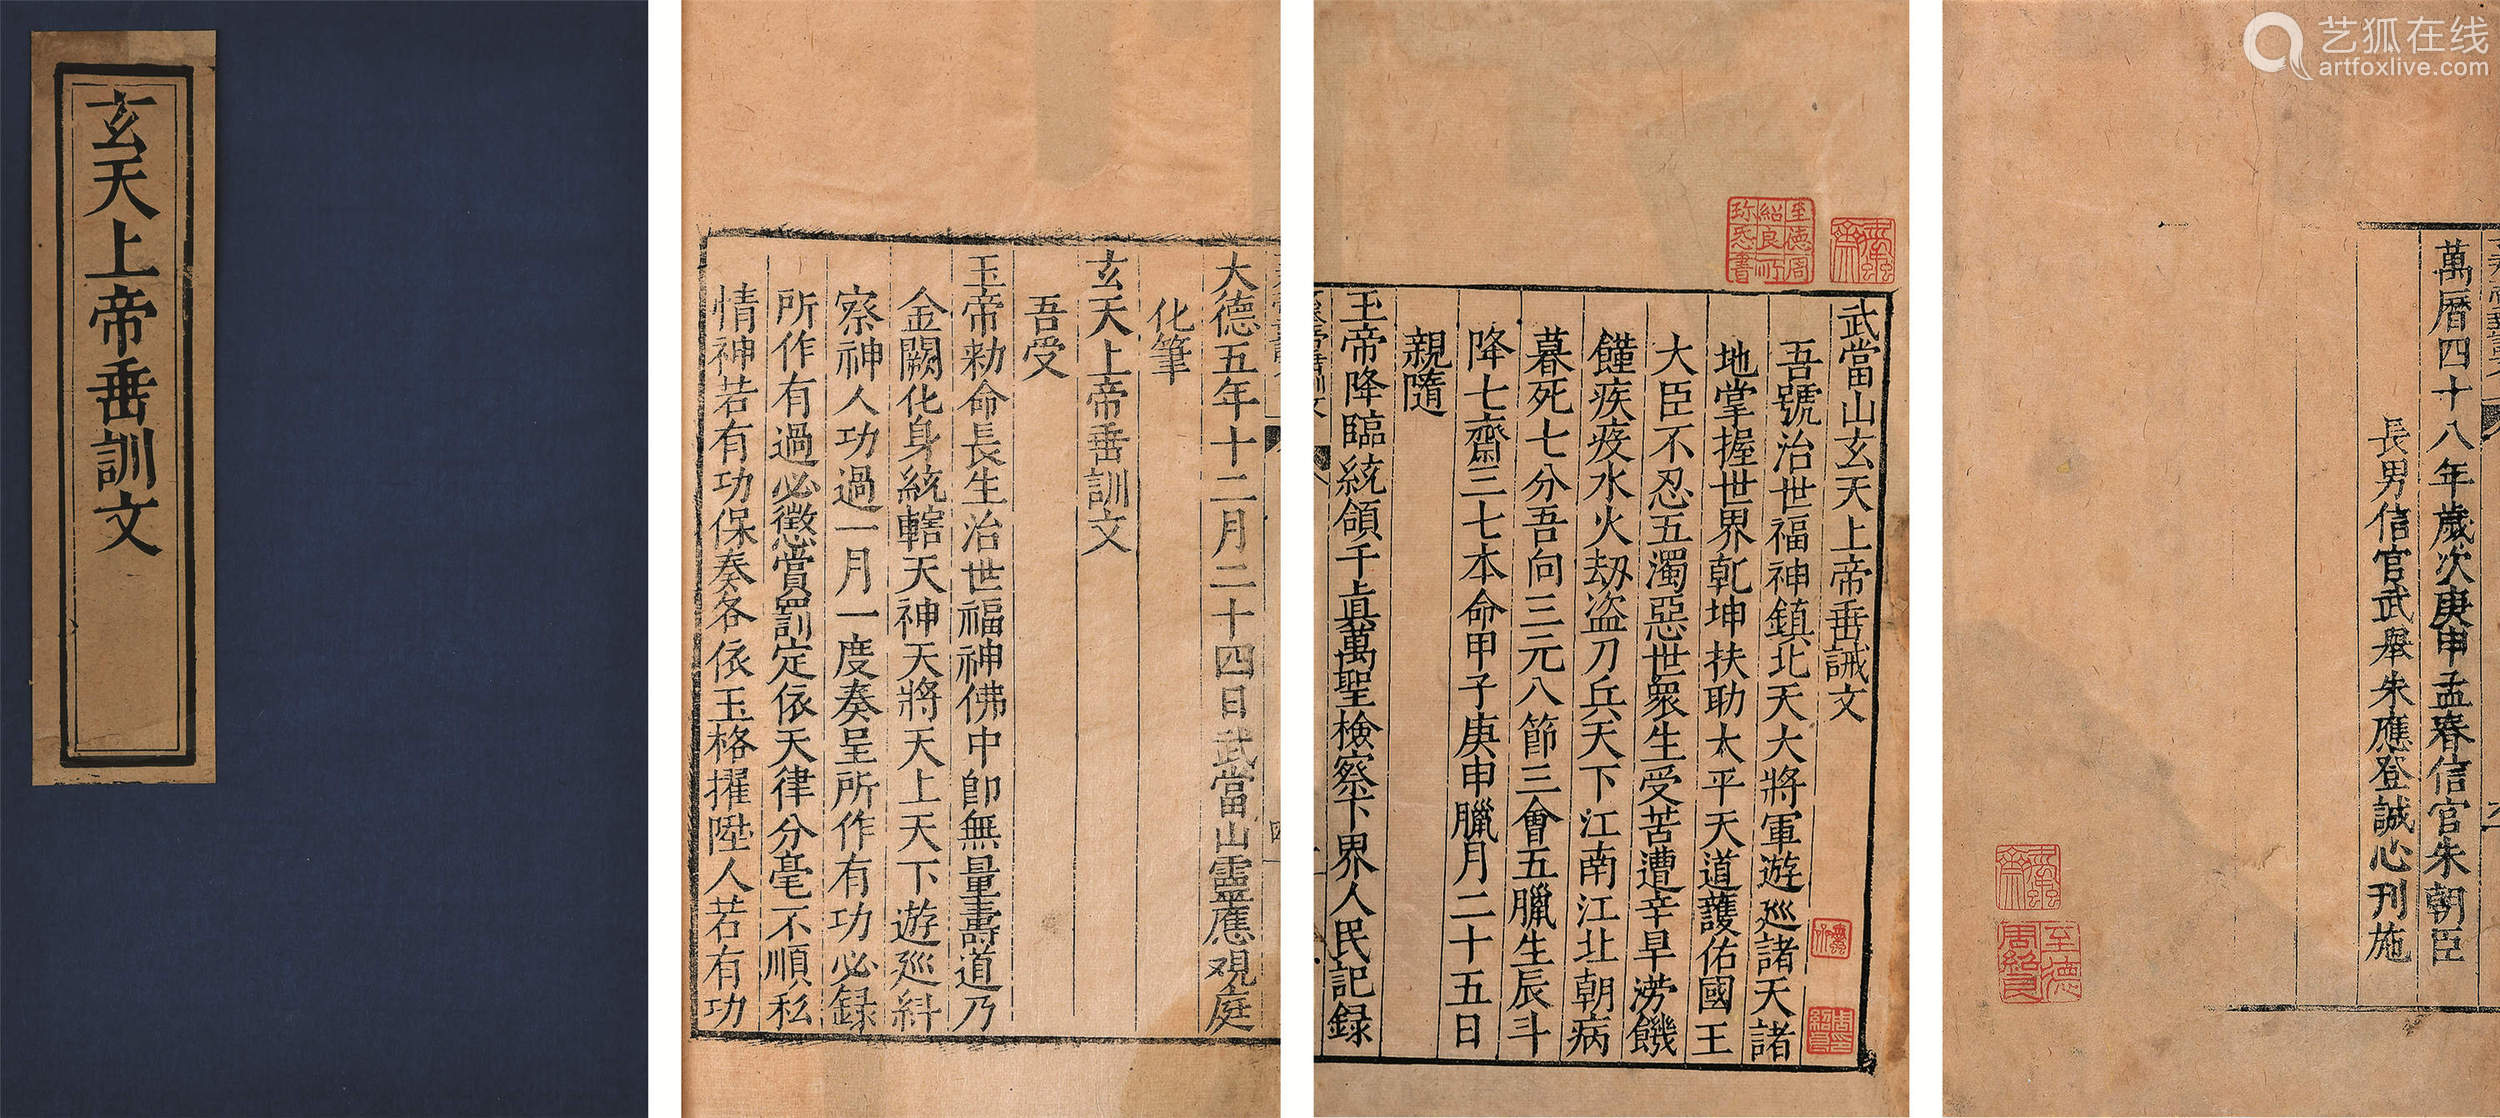 玄天上帝垂訓文
大德五年十二月二十四日武當山靈應观庭
化筆
玄天上帝垂訓文
吾受
玉帝勑命長生治世福神佛中即無量壽道乃
金闕化身統轄天神天將天上天下遊廵糾
察神人功過一月一度奏呈所作有功必録
所作有過必懲賞罰定依天律分毫不順私
情神若有功保奏各依玉格擢陞人若有功
至德周
紹良所
珍悉書
武當山玄天上帝垂誡文
吾號治世福神鎮北天大將軍遊廵諸天諸
地掌握世界乹坤扶助太平天道護佑國王
大臣不忍五濁惡世衆生受苦遭辛旱澇饑
饉疾疫水火劫盗刀兵天下江南江北朝病
暮死七分吾向三元八節三會五臘生辰斗
降七齋三七本命甲子庚申臘月二十五日
親隨
玉帝降臨統領千真萬聖檢察下界人民記録
萬曆四十八年歲次庚申孟春信官朱朝臣
長男信官武舉朱應登誠心刊施
至德
周紹良
艺狐在线
artfoxlive.com